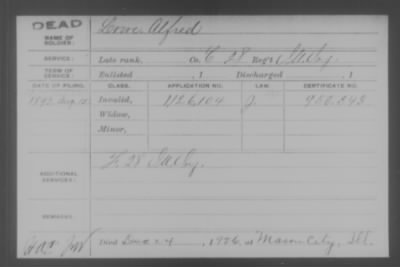 DEAD
NAME OF SOLDIER:
Lowe Alfred
SERVICE:
Late rank, Co. C 28 Reg't
TERM OF SERVICE:
Enlisted , 1 Discharged , 1
DATE OF FILING. CLASS. APPLICATION NO. LAW. CERTIFICATE NO.
1892 Aug. Invalid, 1126,104 J.
Widow,
Minor,
ADDITIONAL SERVICES:
F. 28
REMARKS:
Died 24, 1926, at Mason City, Ill.